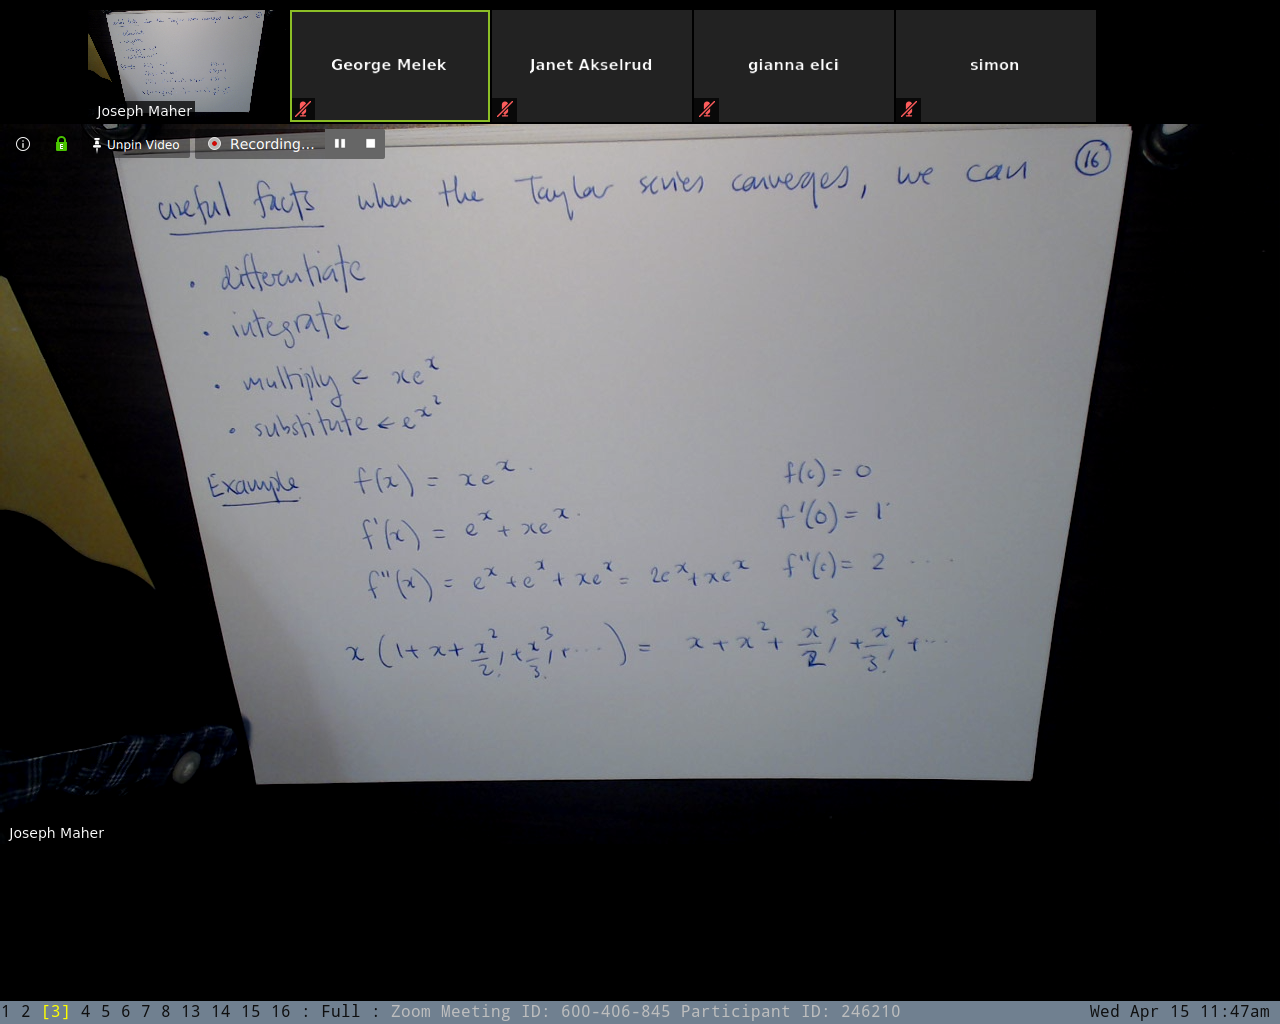 Joseph Maher
George Melek
Janet Akselrud
gianna elci
simon
Unpin Video
Recording...
useful facts when the Taylor series converges, we can
16
• differentiate
• integrate
• multiply ← xe^x
• substitute ← e^x^2
Example f(x) = xe^x f(0) = 0
f'(x) = e^x + xe^x f'(0) = 1
f''(x) = e^x + e^x + xe^x = 2e^x + xe^x f''(0) = 2 ....
x (1 + x + x^2/2! + x^3/3! + ....) = x + x^2 + x^3/2! + x^4/3! + ...
Joseph Maher
1 2 [3] 4 5 6 7 8 13 14 15 16 : Full : Zoom Meeting ID: 600-406-845 Participant ID: 246210 Wed Apr 15 11:47am